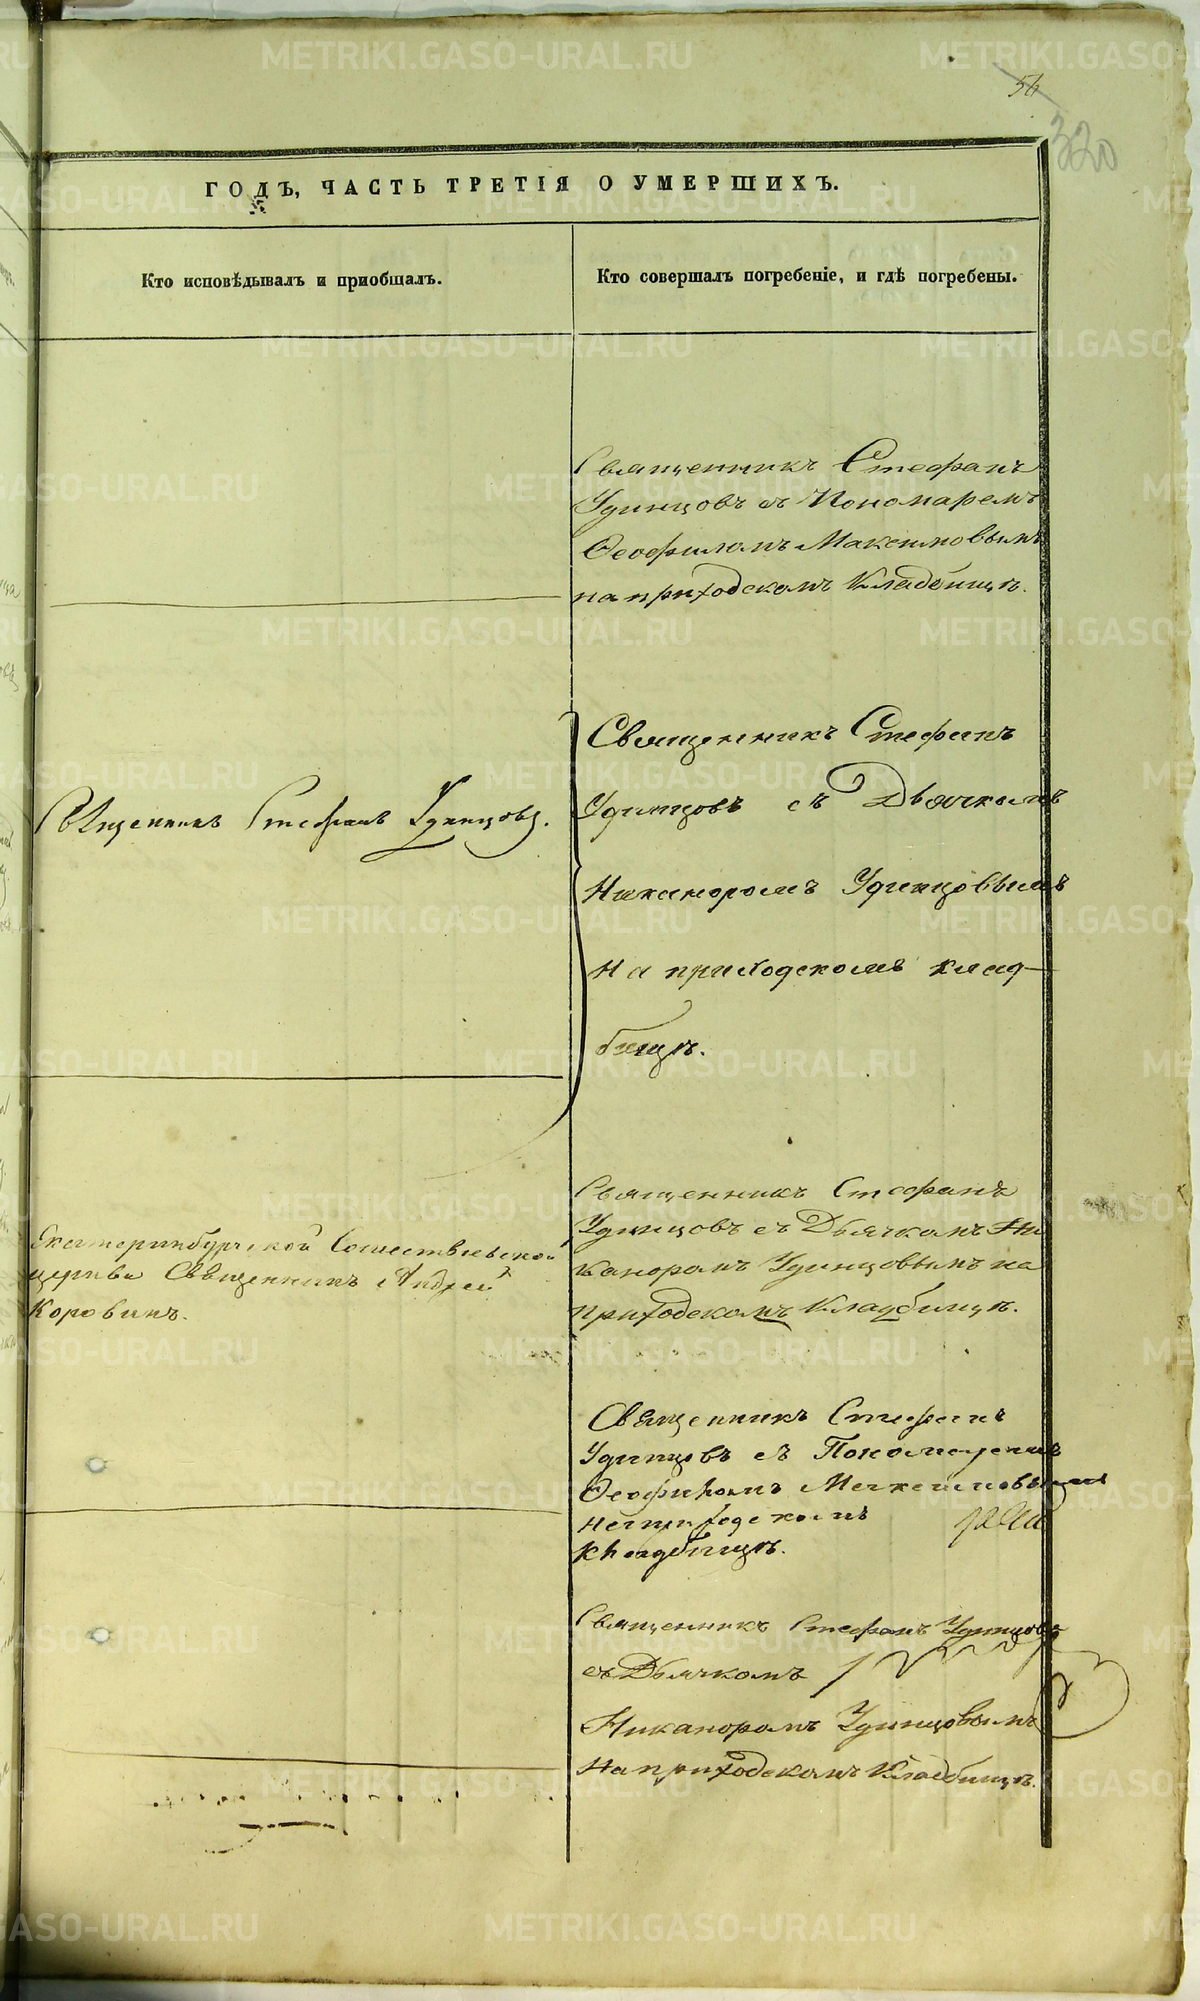 56
320
ГОДЪ, ЧАСТЬ ТРЕТІЯ О УМЕРШИХЪ.
Кто исповѣдывалъ и приобщалъ.
Кто совершалъ погребеніе, и гдѣ погребены.
Священникъ Стефанъ
Удинцовъ съ Пономаремъ
Ѳеофиломъ Максимовымъ
на приходскомъ кладбищѣ.
Священникъ Стефанъ Удинцовъ.
Священникъ Стефанъ
Удинцовъ съ Дьячкомъ
Никаноромъ Удинцовымъ
на приходскомъ клад-
бищѣ.
Екатеринбургской Сошествіевской
церкви Священникъ Андрей
Коровинъ.
Священникъ Стефанъ
Удинцовъ съ Дьячкомъ Ни
каноромъ Удинцовымъ на
приходскомъ кладбищѣ.
Священникъ Стефанъ
Удинцовъ съ Пономаремъ
Ѳеофиломъ Максимовымъ
на приходскомъ
кладбищѣ.
Священникъ Стефанъ Удинцовъ
съ Дьячкомъ
Никаноромъ Удинцовымъ
на приходскомъ кладбищѣ.
METRIKI.GASO-URAL.RU